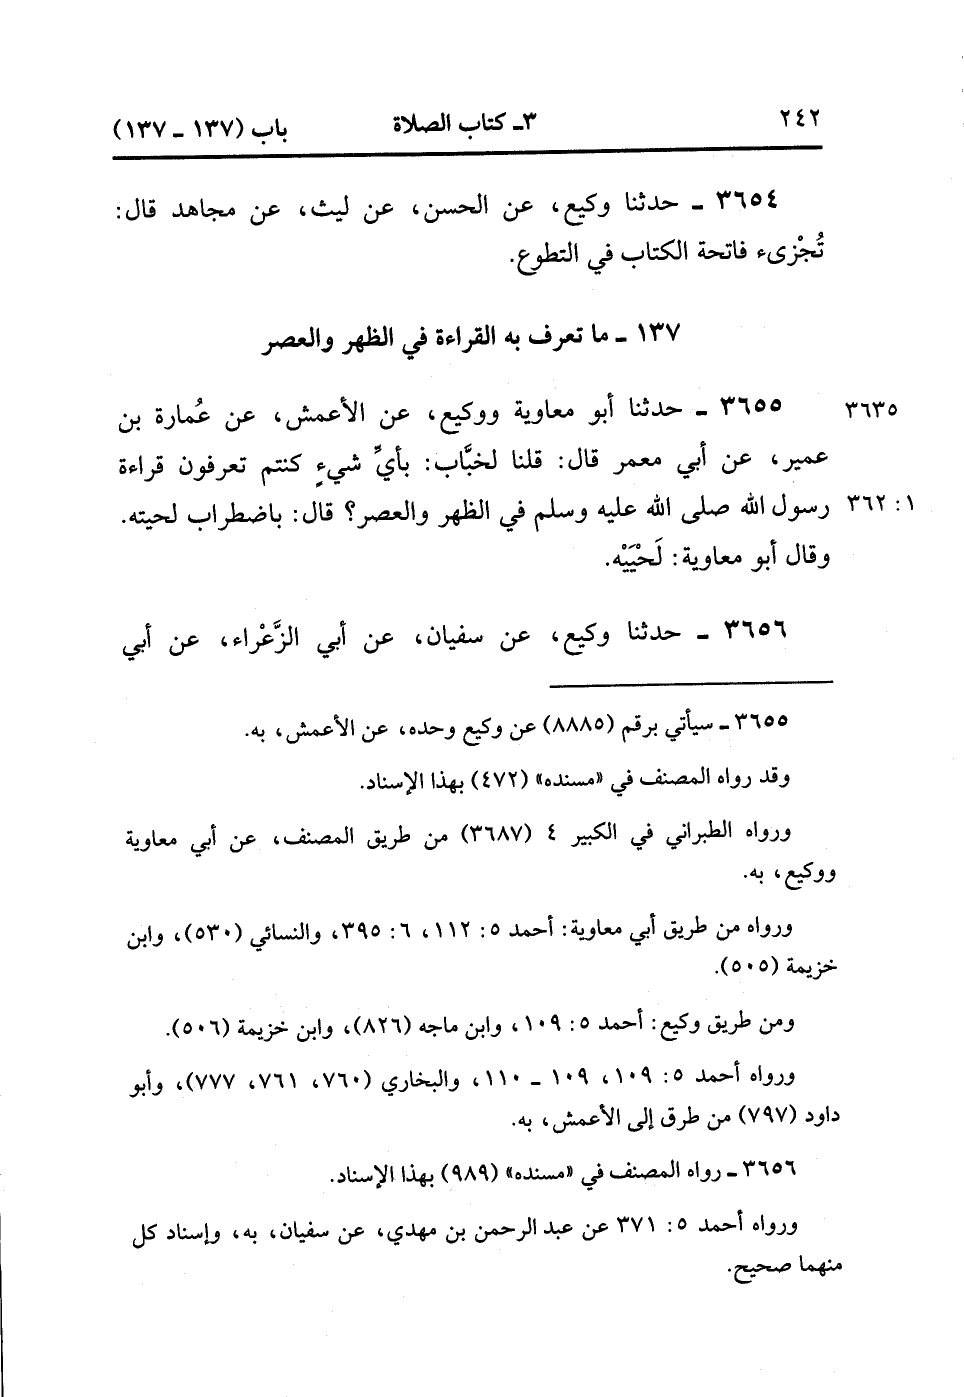 ٢٤٢ ٣ـ كتاب الصلاة باب (١٣٧ ـ ١٣٧)
٣٦٥٤ ـ حدثنا وكيع، عن الحسن، عن ليث، عن مجاهد قال:
تُجْزىء فاتحة الكتاب في التطوع.
١٣٧ ـ ما تعرف به القراءة في الظهر والعصر
٣٦٣٥ ٣٦٥٥ ـ حدثنا أبو معاوية ووكيع، عن الأعمش، عن عُمارة بن
عمير، عن أبي معمر قال: قلنا لخبَّاب: بأيِّ شيءٍ كنتم تعرفون قراءة
١: ٣٦٢ رسول الله صلى الله عليه وسلم في الظهر والعصر؟ قال: باضطراب لحيته.
وقال أبو معاوية: لَحْيَيْه.
٣٦٥٦ ـ حدثنا وكيع، عن سفيان، عن أبي الزَّعْراء، عن أبي
٣٦٥٥ ـ سيأتي برقم (٨٨٨٥) عن وكيع وحده، عن الأعمش، به.
وقد رواه المصنف في «مسنده» (٤٧٢) بهذا الإسناد.
ورواه الطبراني في الكبير ٤ (٣٦٨٧) من طريق المصنف، عن أبي معاوية
ووكيع، به.
ورواه من طريق أبي معاوية: أحمد ٥: ١١٢، ٦: ٣٩٥، والنسائي (٥٣٠)، وابن
خزيمة (٥٠٥).
ومن طريق وكيع: أحمد ٥: ١٠٩، وابن ماجه (٨٢٦)، وابن خزيمة (٥٠٦).
ورواه أحمد ٥: ١٠٩، ١٠٩ ـ ١١٠، والبخاري (٧٦٠، ٧٦١، ٧٧٧)، وأبو
داود (٧٩٧) من طرق إلى الأعمش، به.
٣٦٥٦ ـ رواه المصنف في «مسنده» (٩٨٩) بهذا الإسناد.
ورواه أحمد ٥: ٣٧١ عن عبد الرحمن بن مهدي، عن سفيان، به، وإسناد كل
منهما صحيح.